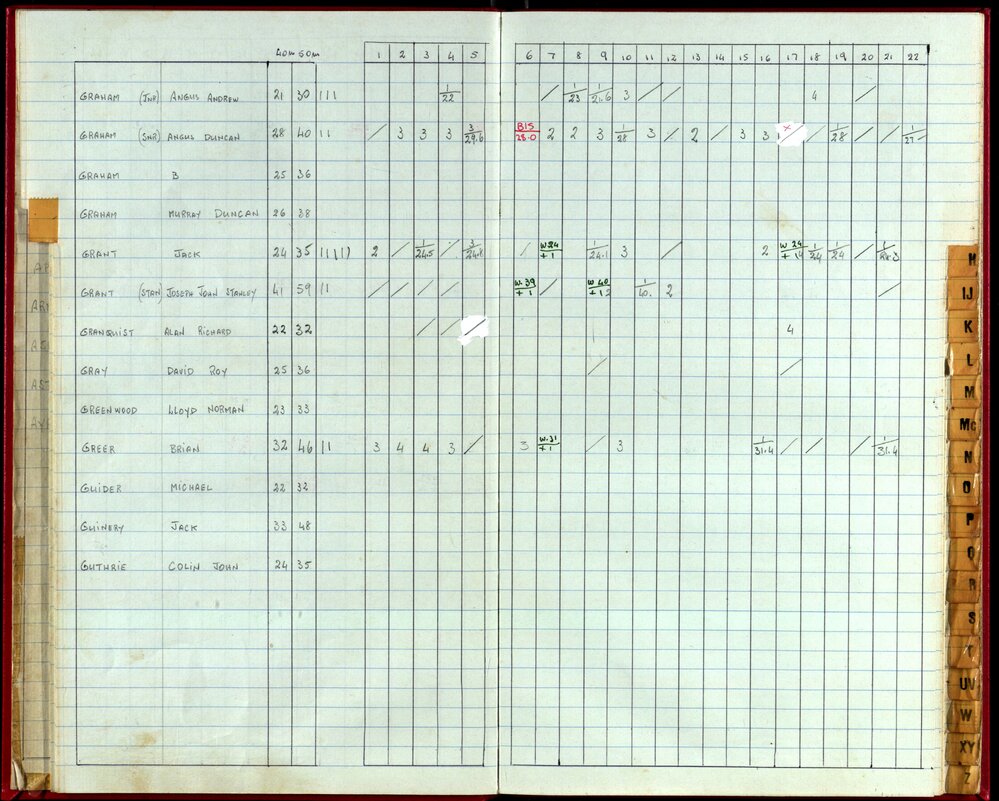 40m 50m 1 2 3 4 5 6 7 8 9 10 11 12 13 14 15 16 17 18 19 20 21 22
GRAHAM (JNR) ANGUS ANDREW 21 30 ||| 1/22 / 1/23 1/21.6 3 / / 4 /
GRAHAM (SNR) ANGUS DUNCAN 28 40 || / 3 3 3 3/29.6 BIS/28.0 2 2 3 1/28 3 / 2 / 3 3 x / / 1/28 / / 1/27
GRAHAM B 25 36
GRAHAM MURRAY DUNCAN 26 38
GRANT JACK 24 35 ||||| 2 / 1/24.5 / 3/24.8 / W24/+1 1/24.1 3 / 2 W24/+1 1/24 1/24 / 1/24.3
GRANT (STAN) JOSEPH JOHN STANLEY 41 59 || / / / / W.39/+1 / W40/+12 1/40. 2 /
GRANQUIST ALAN RICHARD 22 32 / / / 4
GRAY DAVID ROY 25 36 / /
GREENWOOD LLOYD NORMAN 23 33
GREER BRIAN 32 46 || 3 4 4 3 / 3 W.31/+1 / 3 1/31.4 / / / 1/31.4
GUIDER MICHAEL 22 32
GUINERY JACK 33 48
GUTHRIE COLIN JOHN 24 35
AR
AST
H
IJ
K
L
M
Mc
N
O
P
Q
R
S
T
UV
W
XY
Z